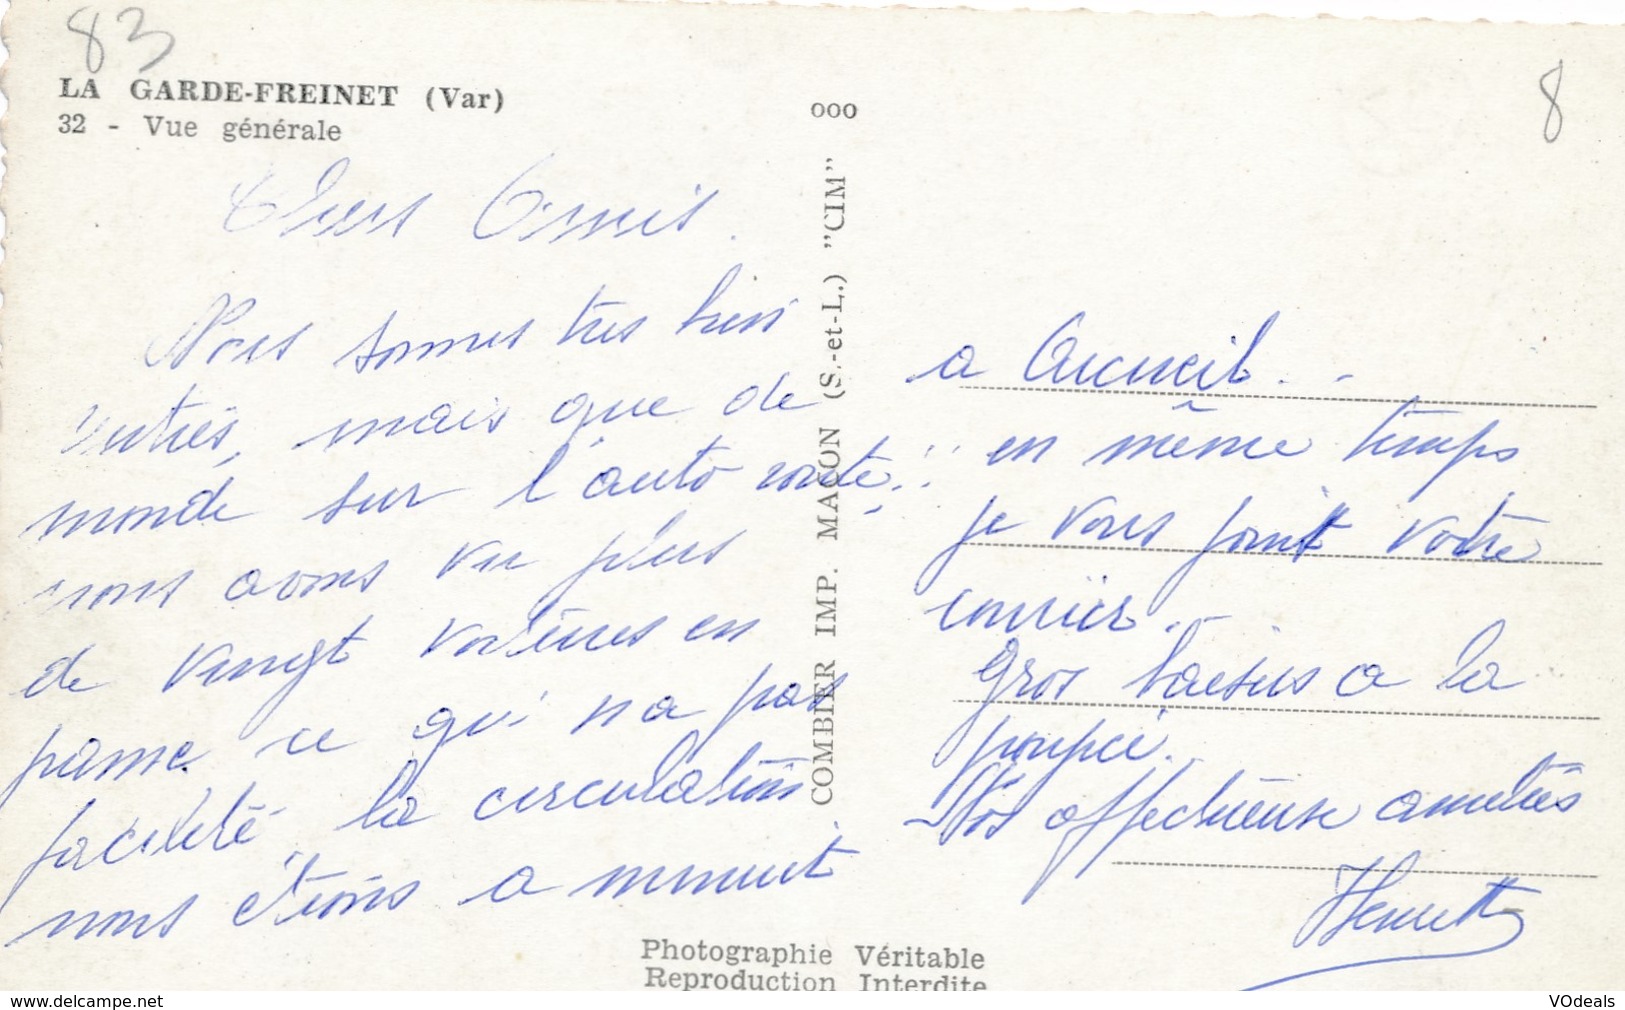 83
8
LA GARDE-FREINET (Var)
32 - Vue générale
000
COMBIER IMP. MACON (S.-et-L.) "CIM"
Chers Amis.
Nous sommes très bien
rentrés, mais que de
monde sur l'auto route!!
nous avons vu plus
de vingt voitures en
panne ce qui n a pas
facilité la circulation.
nous étions a minuit
a Arcueil. -
en même temps
je vous joint votre
courrier.
Gros baisers a la
poupée.
Nos affectueuse amitiés
Henriette
Photographie Véritable
Reproduction Interdite
www.delcampe.net
VOdeals